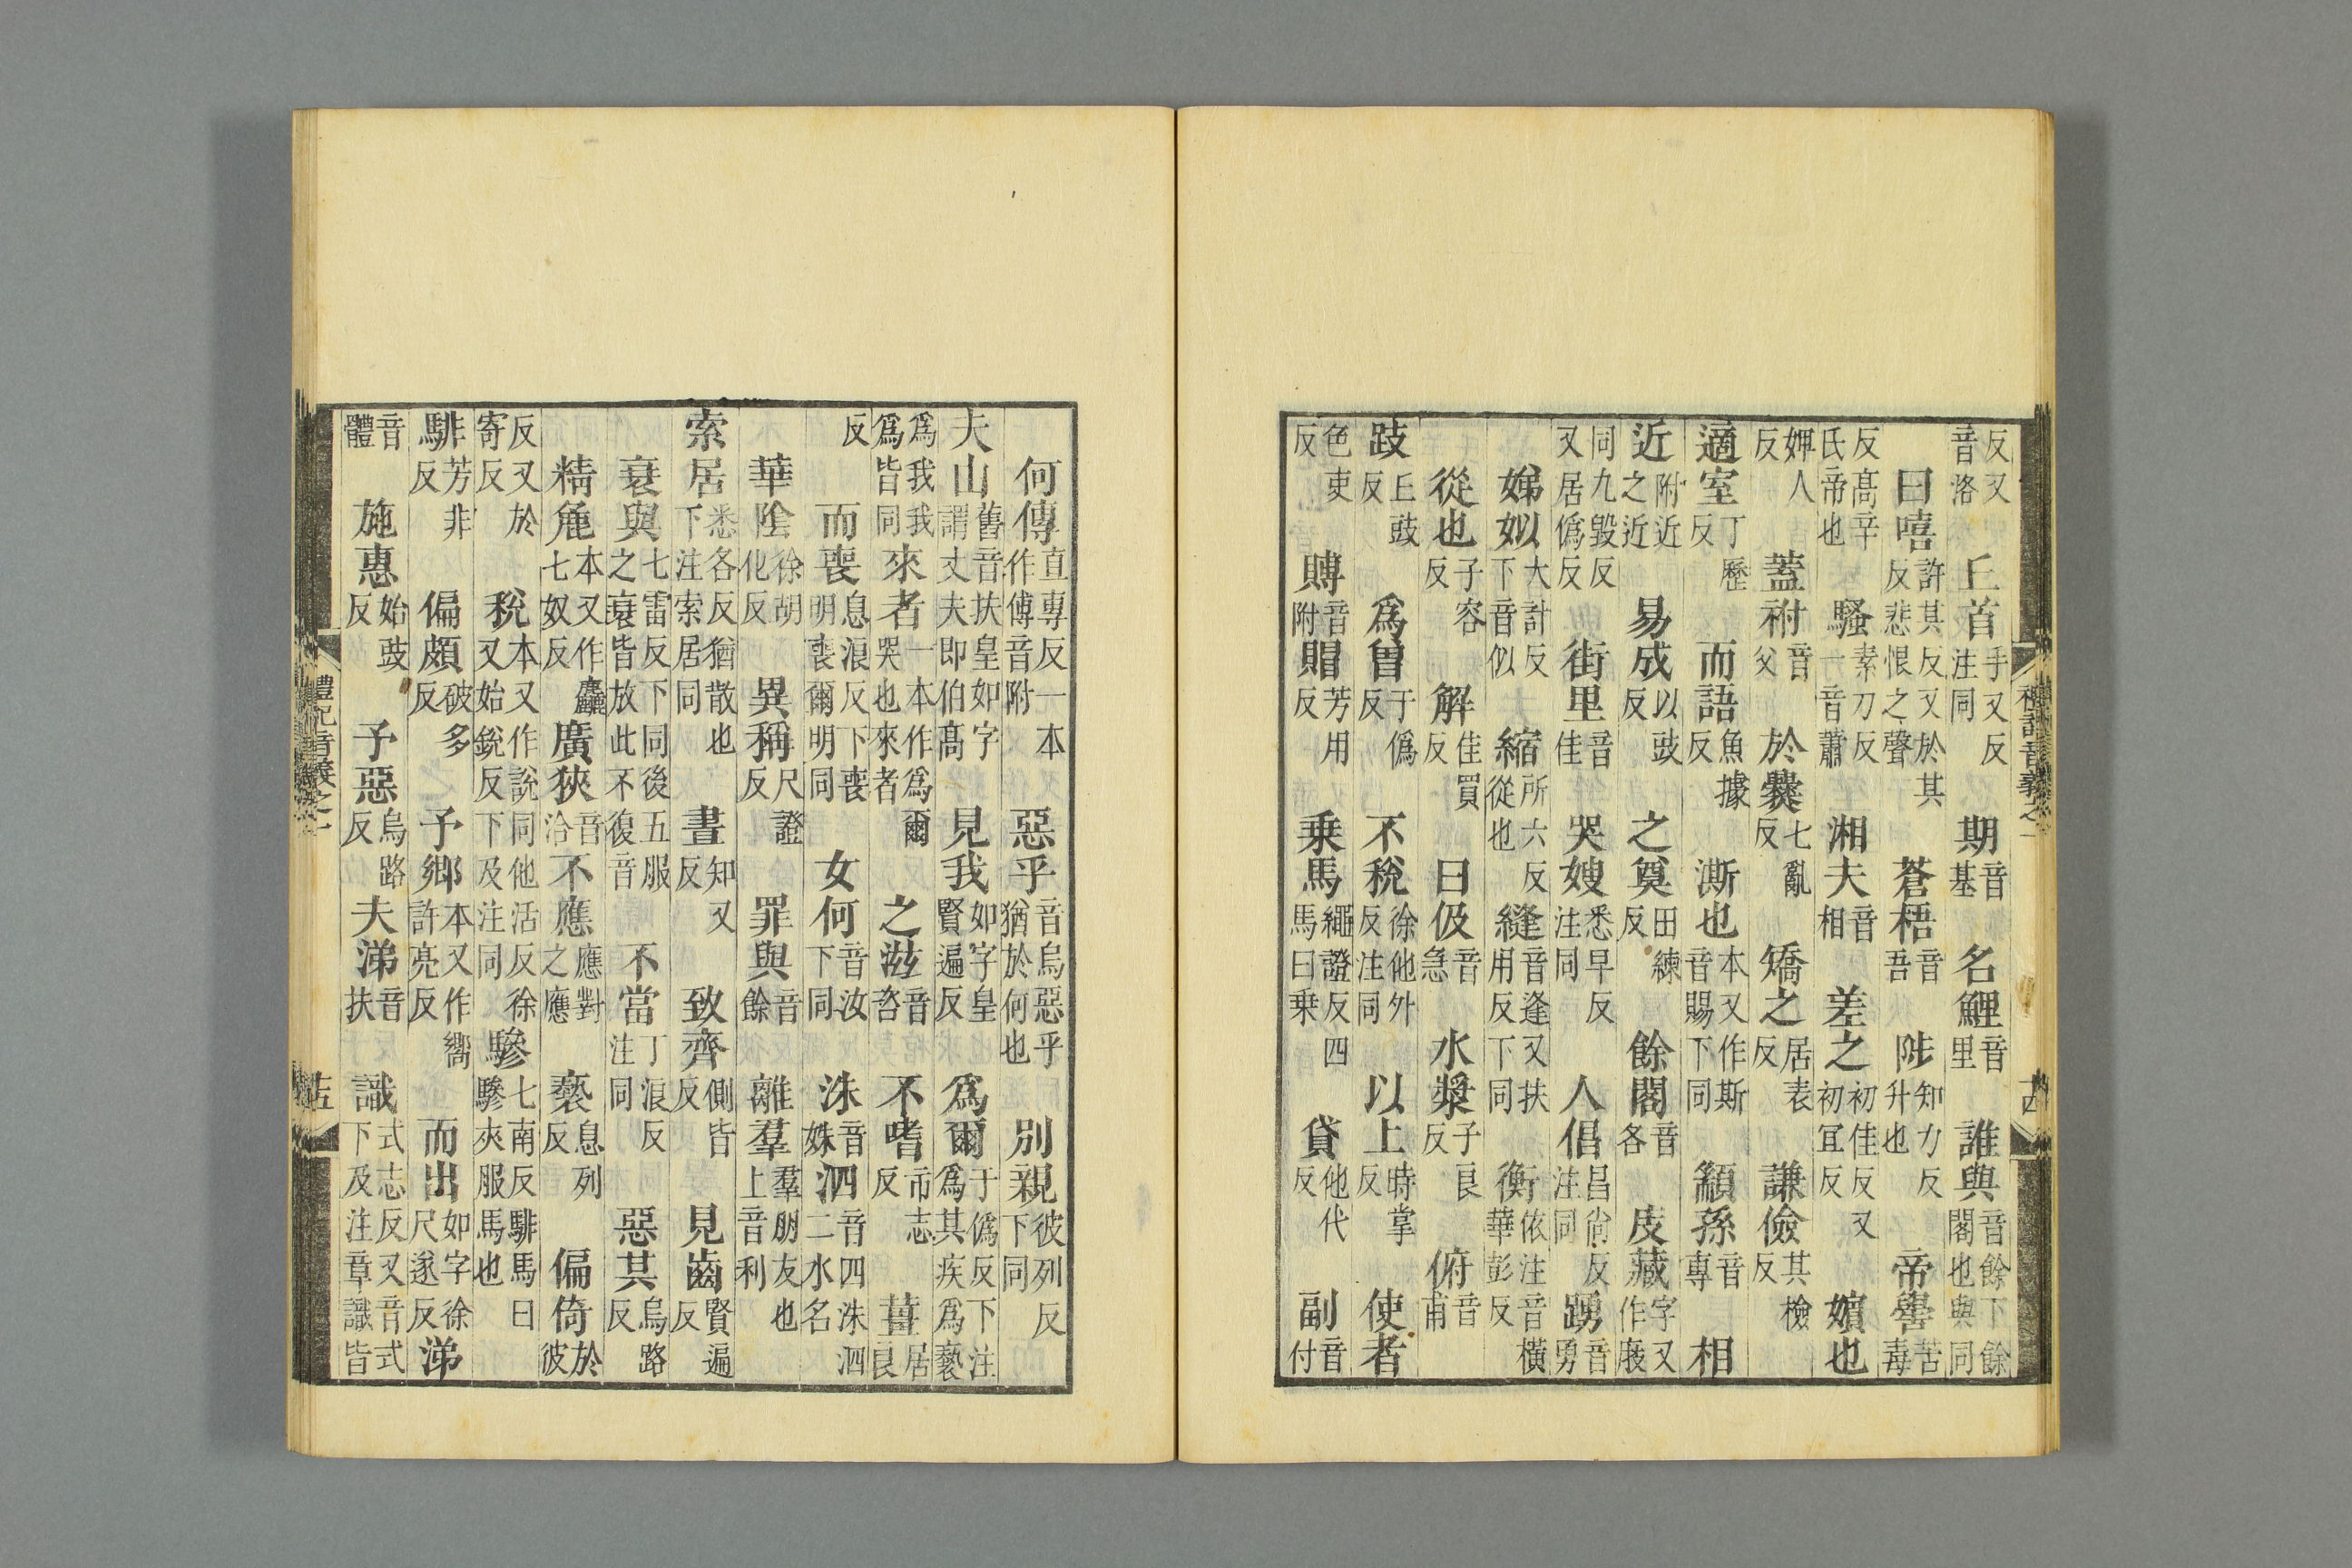 禮記音義之一
反又音洛 丘首乎又反注同 期音基 名鯉音里 誰與音餘下餘閣也與同
曰嘻許其反又於其反悲恨之聲 蒼梧音吾 陟知力反升也 帝嚳苦毒
反高辛氏帝也 騷素刀反一音蕭 湘夫音相 差之初佳反又初宜反 嬪也
婢人反 蓋祔音父 於爨七亂反 矯之居表反 謙儉其檢反
適室丁歷反 而語魚據反 澌也本又作斯音賜下同 顓孫音專 相
近附近之近 易成以豉反 之奠田練反 餘閣音各 庋藏字又作庪
同九毀反又居僞反 街里音佳 哭嫂悉早反注同 人倡昌尙反注同 踴音勇
娣姒大計反下音似 縮所六反從也 縫音逢又扶用反下同 衡依注音橫華彭反
從也子容反 解佳買反 曰伋音急 水漿子良反 俯音甫
跂丘豉反 爲曽于僞反 不稅徐他外反注同 以上時掌反 使者
色吏反 賻音附 賵芳用反 乗馬繩證反四馬曰乗 貸他代反 副音付
何傳直專反一本作傅音附 惡乎音烏惡乎猶於何也 別親彼列反下同
夫山舊音扶皇如字謂丈夫即伯髙 見我如字皇賢遍反 爲爾于僞反下注爲其疾爲褻
爲我我爲皆同 來者一本作爲爾哭也來者 之滋音咨 不嗜市志反 薑居良
反 而喪息浪反下喪明喪爾明同 女何音汝下同 洙音姝 泗音四洙泗二水名
華陰徐胡化反 異稱尺證反 罪與音餘 離羣羣朋友也上音利
索居悉各反猶散也下注索居同 晝知又反 致齊側皆反 見齒賢遍反
衰與七雷反下同後五服之衰皆放此不復音 不當丁浪反注同 惡其烏路反
精麄本又作麤七奴反 廣狹音洽 不應應對之應 褻息列反 偏倚於彼
反又於寄反 稅本又作說同他活反徐又始銳反下及注同 驂七南反騑馬曰驂夾服馬也
騑芳非反 偏頗破多反 予鄉本又作嚮許亮反 而出如字徐尺遂反 涕
音體 施惠始豉反 予惡烏路反 夫涕音扶 識式志反又音式下及注章識皆
禮記音義之一